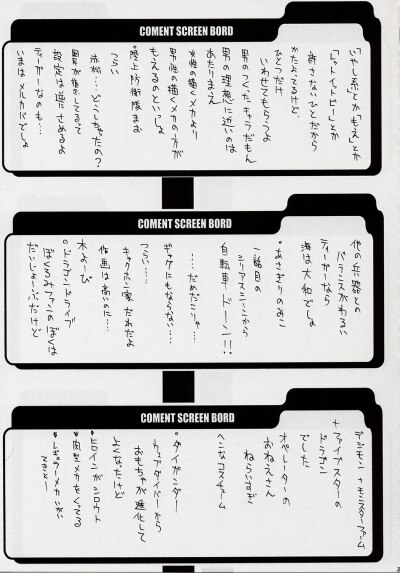 COMENT SCREEN BORD
「いやし系」とか「もえ」とか
「レットイットビー」とか
許さないひとだから
かたよってるけど、
ひとつだけ
いわせてもらうよ
男のつくったキャラだもん
男の理想に近いのは
あたりまえ
女性の描くメカより
男性の描くメカの方が
もえるのといっしょ
陸上防衛隊まお
つらい
赤松…どうしちゃったの?
男が指きしてるって
設定は逆にさめるよ
ティーガーなのも…
いまはメルカバでしょ
COMENT SCREEN BORD
他の兵器との
バランスがわるい
ティーガーなら
海は大和でしょ
・あさぎりのみこ
一話目の
シリアスシーンから
自転車ドーン!!
…だめだこりゃ…
ギャグにもならない…
つらい…
キャラホン家だれだよ
作画は高いのに…
木よーび
・ドラゴンドライブ
ぼくるみファンのぼくは
だいじょーぶだけど
COMENT SCREEN BORD
デジモン+モンスターファーム
+ファイブスターの
ドラゴン
でした
オペレーターの
おねえさん
ねらいすぎ
ヘンなコスチューム
・ダイガンダー
トランプダイバーから
おもちゃが進化して
よくなったけど
・ヒロインがシロウト
・肉型メカをくってる
・レギュラーメカいがい
てきとー